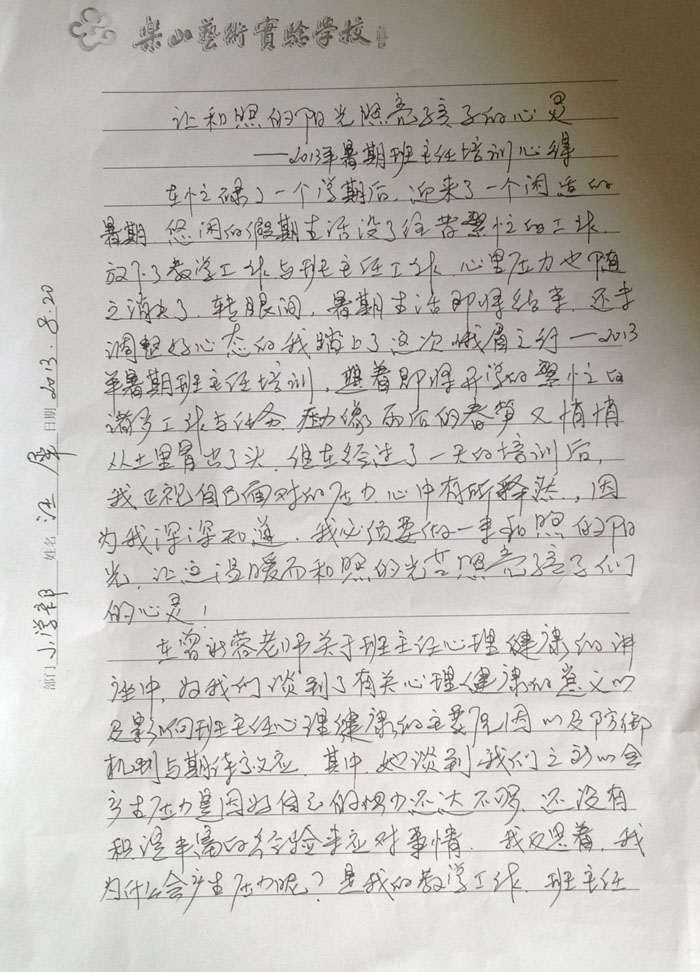 樂山藝術實驗學校
让和煦的阳光照亮孩子的心灵
——2013年暑期班主任培训心得
在忙碌了一个学期后,迎来了一个闲适的
暑期,悠闲的假期生活没了往昔繁忙的工作,
放下了教学工作与班主任工作,心里压力也随
之消失了,转眼间,暑期生活即将结束,还未
调整好心态的我踏上了这次峨眉之行—2013
年暑期班主任培训,想着即将开学的繁忙的
诸多工作与任务,压力像雨后的春笋又悄悄
从土里冒出了头,但在经过了一天的培训后,
我正视自己面对的压力心中有所释然,因
为我深深知道,我必须要做一束和煦的阳
光,让这温暖而和煦的光芒照亮孩子们
的心灵!
在曾老师关于班主任心理健康的讲
座中,为我们谈到了有关心理健康的意义以
及影响班主任心理健康的主要原因以及防御
机制与期待效应,其中,她谈到我们之所以会
产生压力是因为自己的能力还达不够,还没有
积淀丰富的经验来应对事情。我反思着,我
为什么会产生压力呢?是我的教学工作、班主任
部门 小学部 姓名 汪 日期 2013.8.20